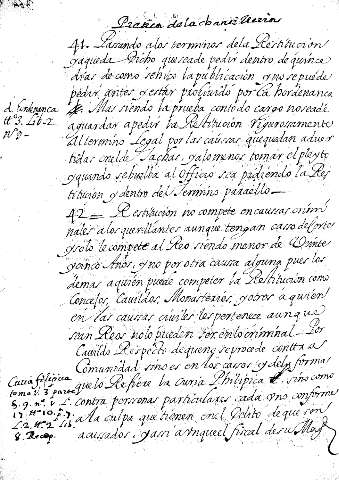 Practica de la chanzilleria
41 - Passando a los terminos de la Restitucion
ya queda dicho que se a de pedir dentro de quince
dias de como se hizo la publicacion y no se puede
pedir antes y estar proivido por la hordenanza
Mas siendo la prueba con todo cargo no se a de
aguardar a pedir la Restitucion rigurosamente
al termino Legal por las causas que quedan adver
tidas en el de tachas, y a lo menos tomar el pleyto
y quando se buelba al officio sea pidiendo la Res
titucion y dentro del termino para ello -
42 = Restitucion no compete en caussas crimi
nales a los querellantes aunque tengan casso de Cortes
y solo le compete al Reo siendo menor de Veinte
y cinco Años, y no por otra causa alguna pues los
demas a quien puede competer la Restitucion como
Concejos, Cavildos, Monasterios, y otros a quien
en las caussas civiles les pertenece aunque
sean Reos no lo pueden ser en lo criminal - Por
Cavildo Respecto de quien se procede contra a
Comunidad sino es en los casos y de la forma
que lo Refiere la Curia Philipica sino como
contra personas particulares cada uno conforme
a la culpa que tienen en el delito de que son
acussados; y assi aunque el fiscal de su Magd
tt. 3. Lib. 2
n. 9 -
Curia filipica
tomo 1. 3 parte
8. Recop.